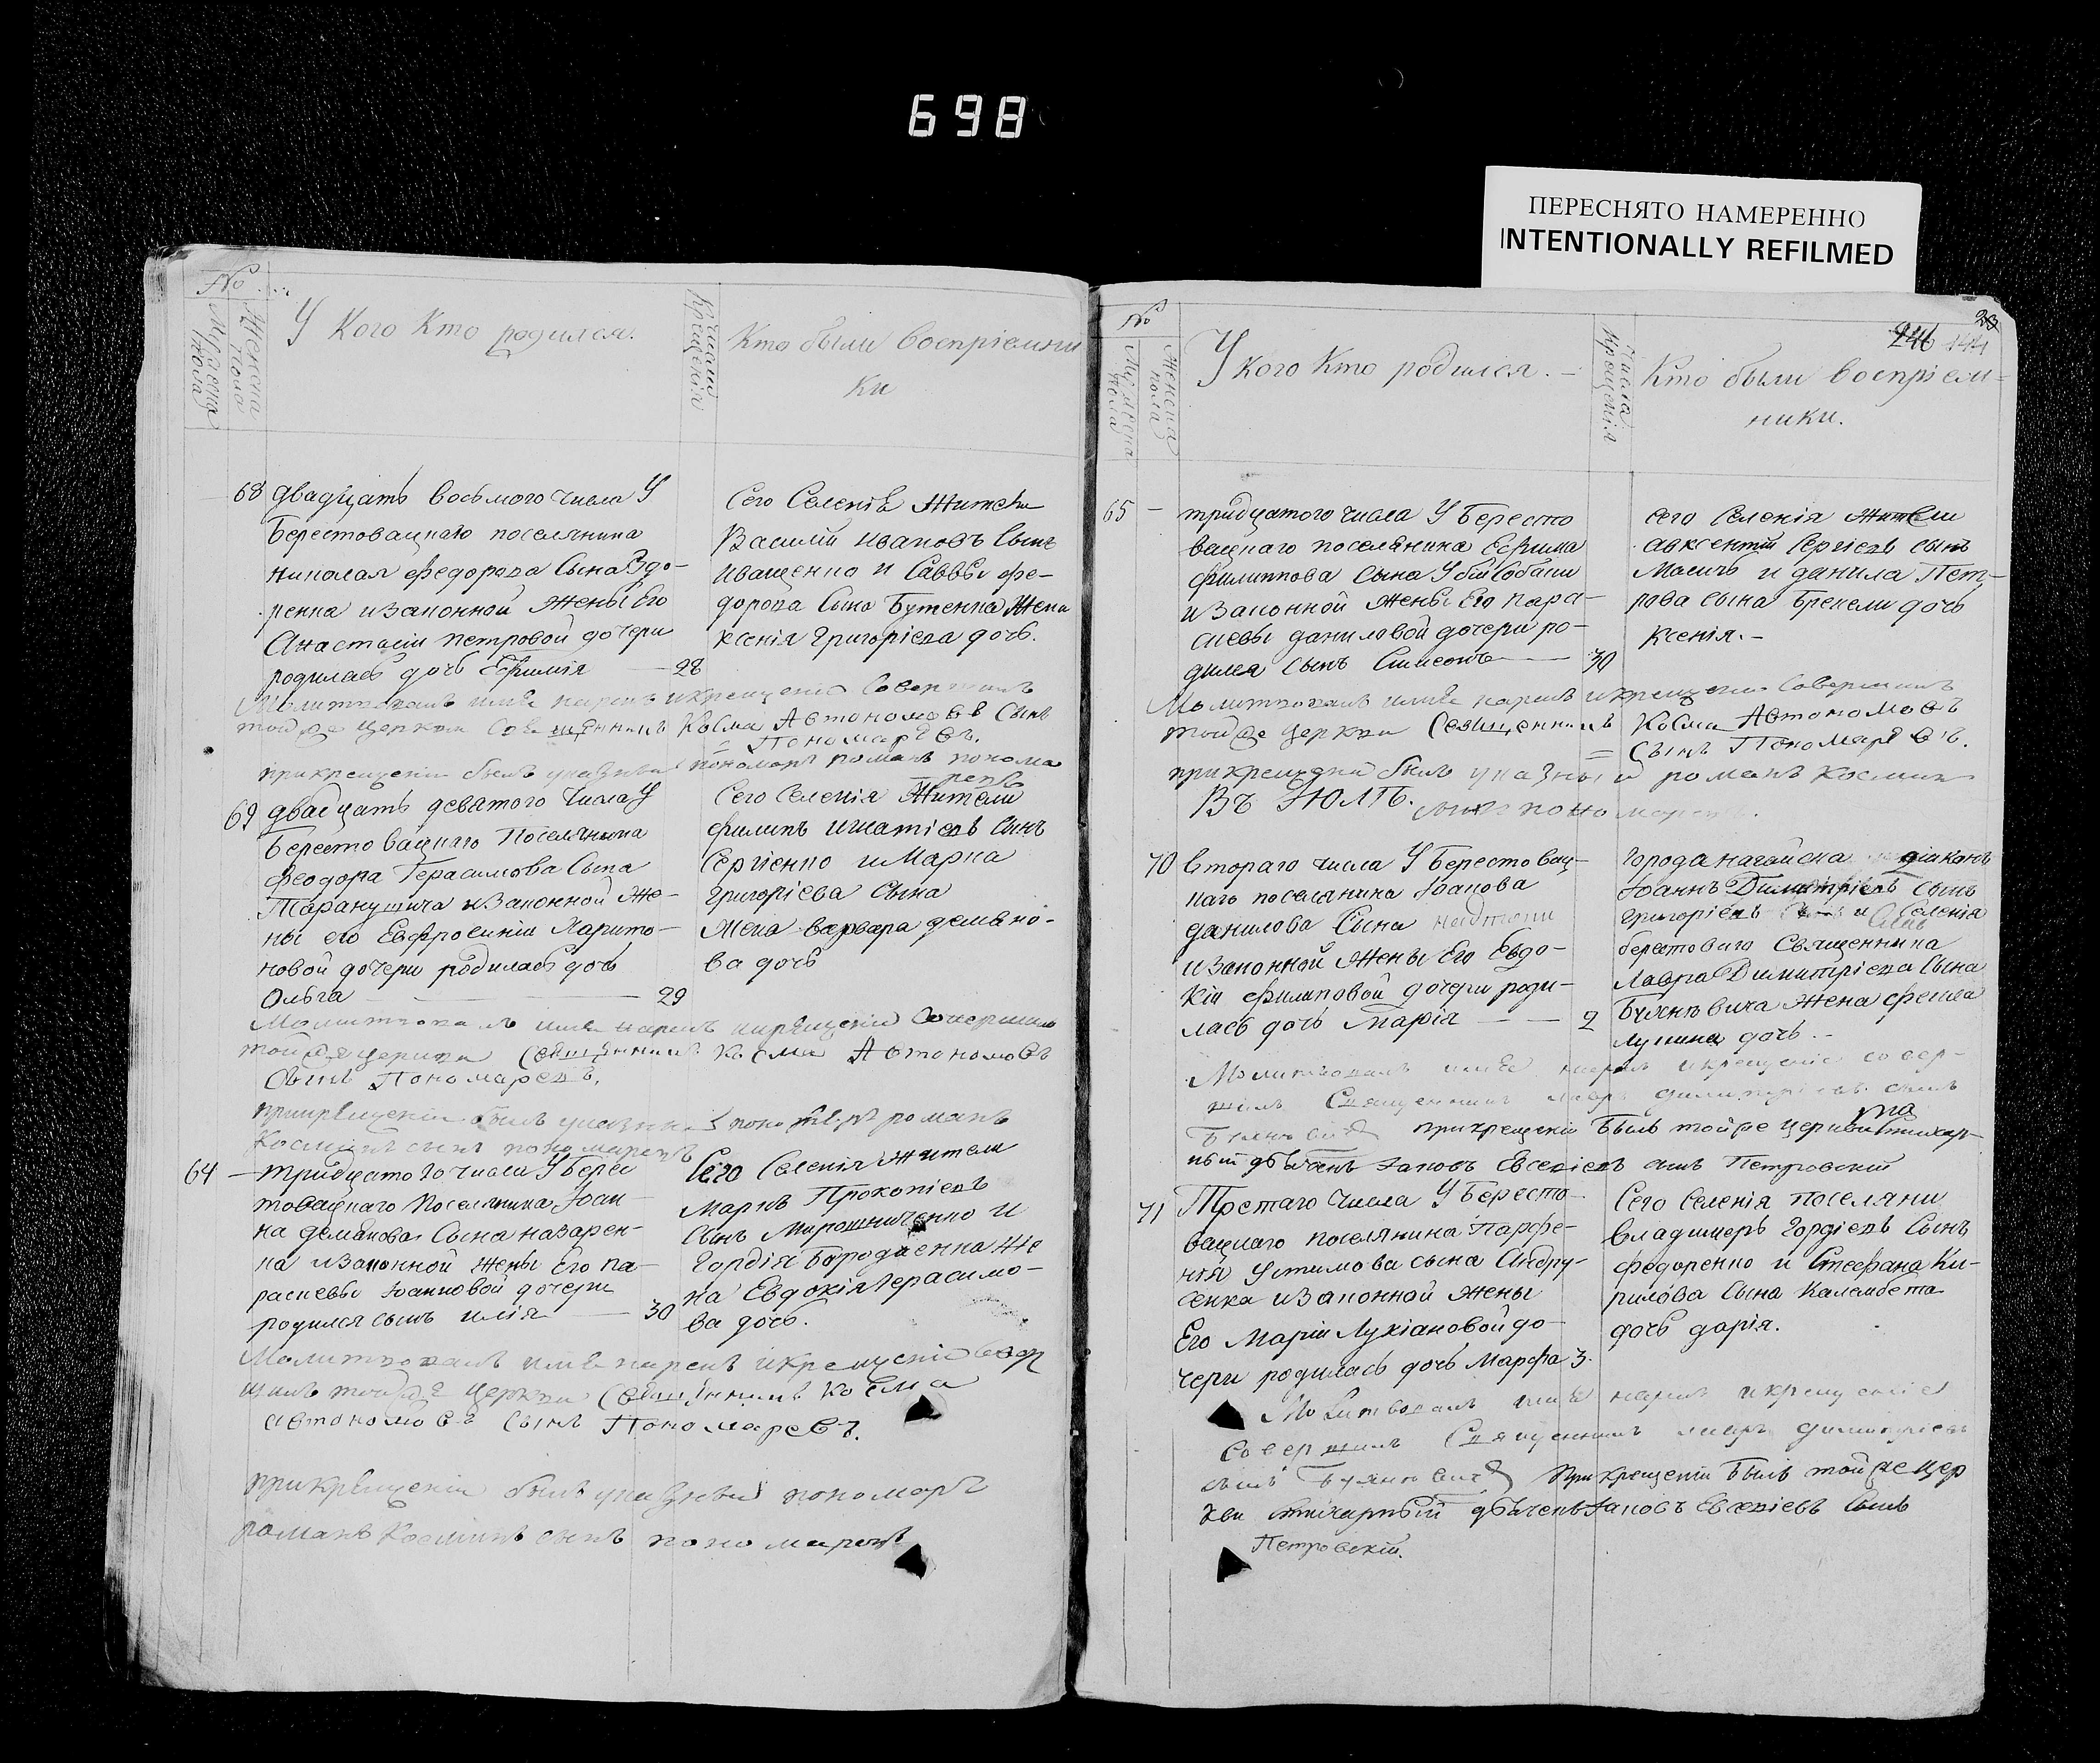 698
ПЕРЕСНЯТО НАМЕРЕННО
INTENTIONALLY REFILMED
№
Мужеска пола
Женска пола
У Кого Кто родился.
Числа Крещенія
Кто были воспріемни
ки
68 двадцать восьмого числа У
Берестовацкаго поселянина
николая федорова Сына Здо-
ренка изаконной жены Его
Анастасіи петровой дочери
родилась дочь Ефимія — 28
Сего Селенія Жители
Василій ивановъ Сынъ
иващенко и Саввы фе-
дорова Сына Бутенка Жена
ксенія григоріева дочь.
Молитвовалъ имя нарекъ икрещеніе Совершилъ
тойже Церкви Священникъ Косма Автономовъ Сынъ
Пономаревъ.
прикрещеніи былъ указный пономарь романъ понома
ревъ
69 двадцать девятого Числа У
Берестовацкаго Поселянина
феодора Герасимова Сына
Таранушича изаконной Же-
ны его Евфросиніи Харито-
новой дочери родилась дочь
Ольга — 29
Сего Селенія Жители
филипъ игнатіевъ Сынъ
Сергіенко и Марка
григоріева Сына
Жена варвара демьяно-
ва дочь
Молитвовалъ имя нарекъ икрещеніе Совершилъ
тойже церкви Священникъ Косма Автономовъ
Сынъ Пономаревъ.
прикрещеніи былъ указный пономарь романъ
Косминъ сынъ пономаревъ
64 — тридцатого числа У Берес
товацкаго Поселянина Іоан
на демянова Сына назарен-
ка изаконной жены Его па-
раскевы Іоанновой дочери
родился сынъ илія — 30
Сего Селенія жители
Маркъ Прокопіевъ
Сынъ Мирошниченко и
Гордія Бородаенка Же
на Евдокія герасимо-
ва дочь.
Молитвовалъ имя нарекъ икрещеніе совер
шилъ тойже Церкви Священникъ Косма
Автономовъ Сынъ Пономаревъ.
прикрещеніи былъ указный пономарь
романъ Косминъ сынъ пономаревъ
23
246 144
№
Мужеска пола
Женска пола
У кого Кто родился. —
Числа крещенія
Кто были воспріем-
ники.
65 — тридцатого числа У Бересто
вацкаго поселянина Ефима
филиппова Сына Убійсобаки
изаконной жены Его пара-
скевы даниловой дочери ро-
дился сынъ Симеонъ — 30
сего Селенія Жители
авксентій Сергіевъ сынъ
Масичъ и данила Пет-
рова сына Брекели дочь
Ксенія. —
Молитвовалъ имя нарекъ икрещеніе Совершилъ
тойже Церкви Священникъ Косма Автономовъ
Сынъ Пономаревъ.
прикрещеніи былъ указный романъ косминъ
сынъ пономаревъ.
Въ ІЮЛѢ.
70 втораго числа У Берестовац-
каго поселянина Іоакова
данилова Сына
изаконной жены Его Евдо-
кіи филиповой дочери роди-
лась дочь Марія — 2
Города нагайска діаконъ
Іоаннъ Димитріевъ сынъ
григоріевъ и Селенія
берестоваго Священника
Лавра Димитріева Сына
Буяневича жена фекла
лукина дочь. —
Молитвовалъ имя нарекъ икрещеніе совер-
шилъ Священникъ лавръ димитріевъ сынъ
Буяневичъ прикрещеніи былъ тойже церкви стихар-
ный дьячекъ Іаковъ Евсевіевъ сынъ Петровскій
71 Третаго Числа У Бересто-
вацкаго поселянина Парфе-
нія Устимова сына Андру-
сенка изаконной жены
Его Маріи Лукіановой до-
чери родилась дочь Марфа 3.
Сего Селенія поселяни
владимеръ Гордіевъ Сынъ
федоренко и Стефана Ки-
рилова Сына Каламбета
дочь дарія.
Молитвовалъ имя нарекъ икрещеніе
совершилъ Священникъ лавръ димитріевъ
сынъ Буяневичъ прикрещеніи былъ тойже цер
кви стихарный дьячекъ Іаковъ Евсевіевъ Сынъ
Петровскій.